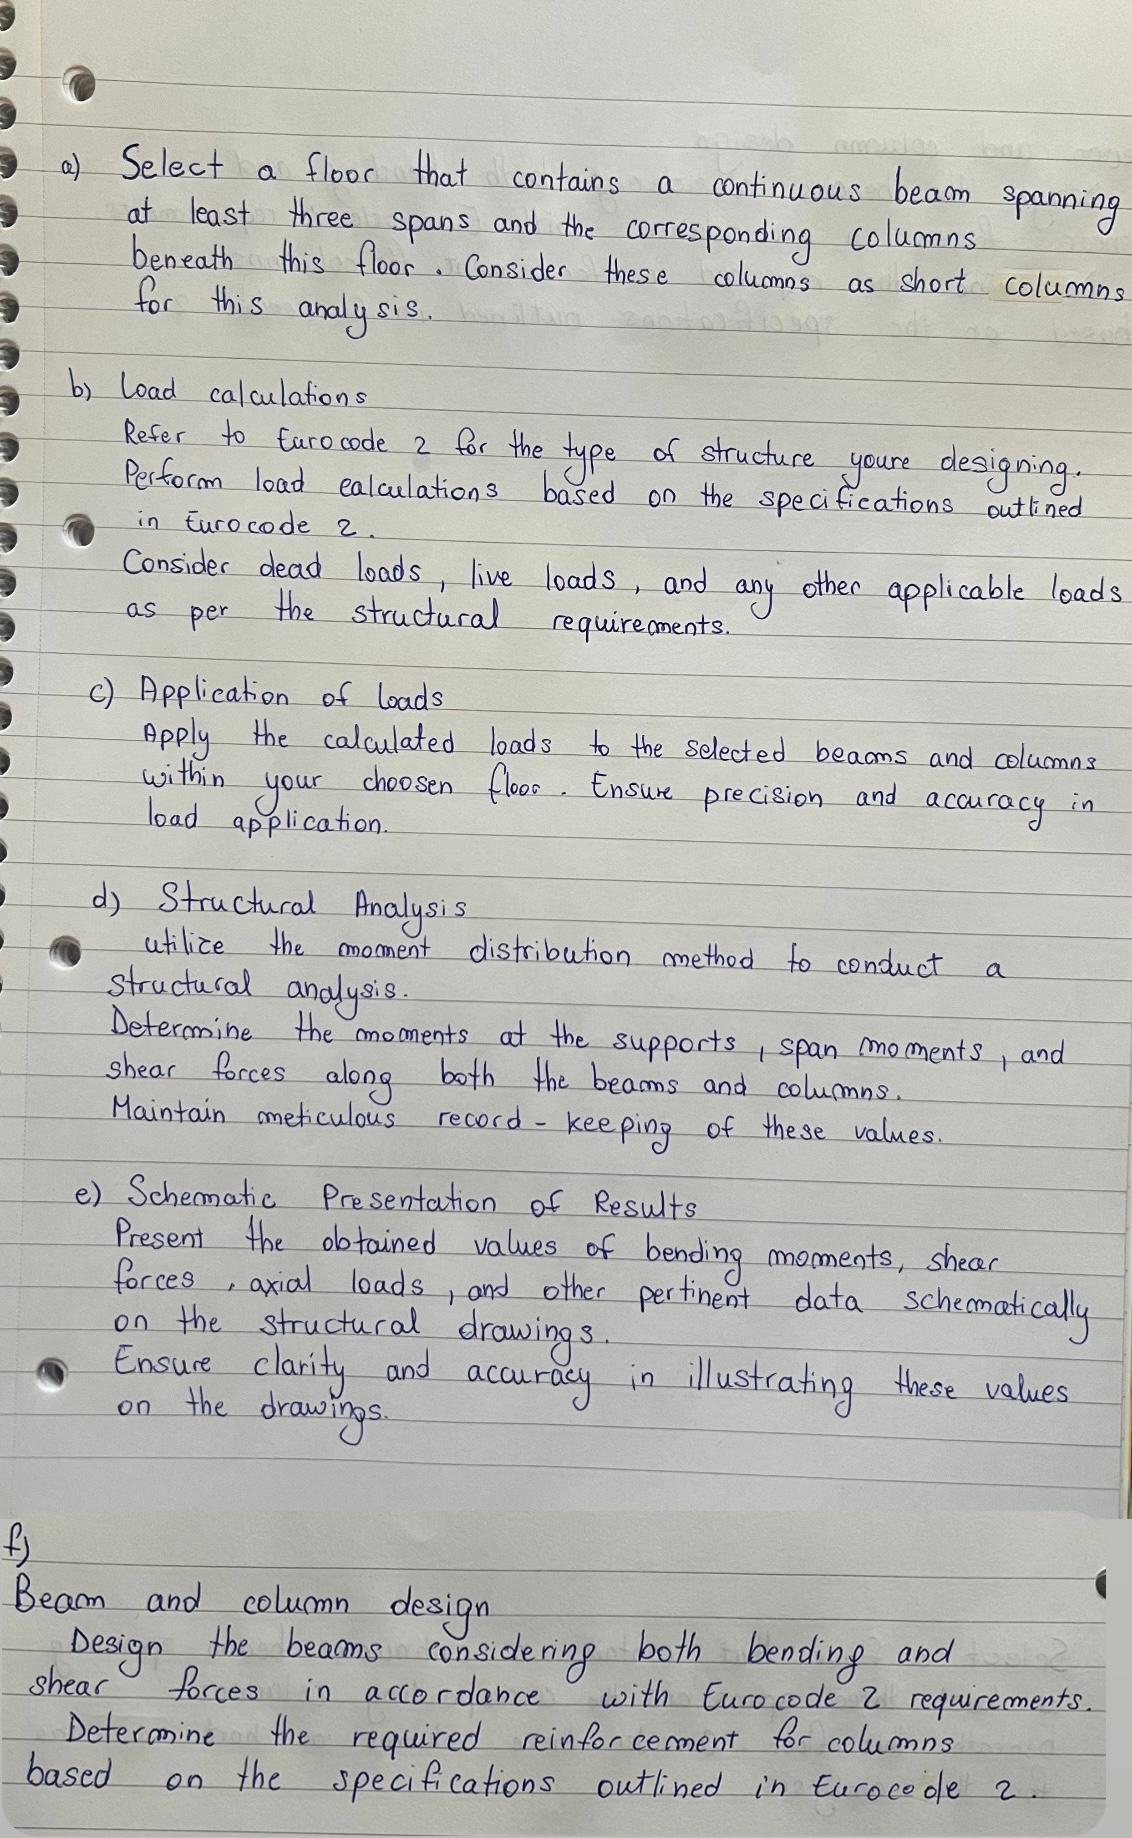 a) Select a floor that contains a continuous beam spanning
at least three spans and the corresponding columns
beneath this floor. Consider these columns as short columns
for this analysis.
b) Load calculations
Refer to Eurocode 2 for the type of structure youre designing.
Perform load calculations based on the specifications outlined
in Eurocode 2.
Consider dead loads, live loads, and any other applicable loads
as per the structural requirements.
c) Application of loads
Apply the calculated loads to the selected beams and columns
within your choosen floor. Ensure precision and accuracy in
load application.
d) Structural Analysis
utilize the moment distribution method to conduct a
structural analysis.
Determine the moments at the supports, span moments, and
shear forces along both the beams and columns.
Maintain meticulous record-keeping of these values.
e) Schematic Presentation of Results
Present the obtained values of bending moments, shear
forces, axial loads, and other pertinent data schematically
on the structural drawings.
Ensure clarity and accuracy in illustrating these values
on the drawings.
f)
Beam and column design
Design the beams considering both bending and
shear forces in accordance with Eurocode 2 requirements.
Determine the required reinforcement for columns
based on the specifications outlined in Eurocode 2.